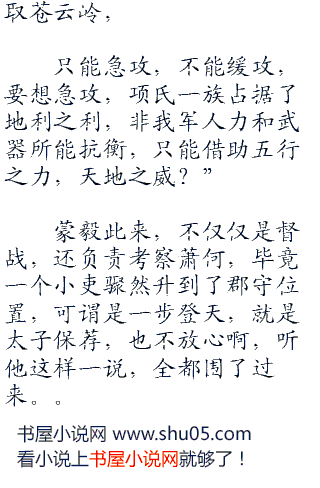 取苍云岭，
只能急攻，不能缓攻，
要想急攻，项氏一族占据了
地利之利，非我军人力和武
器所能抗衡，只能借助五行
之力，天地之威？”
蒙毅此来，不仅仅是督
战，还负责考察萧何，毕竟
一个小吏骤然升到了郡守位
置，可谓是一步登天，就是
太子保荐，也不放心啊，听
他这样一说，全都围了过
来。。
书屋小说网 www.shu05.com
看小说上书屋小说网就够了！